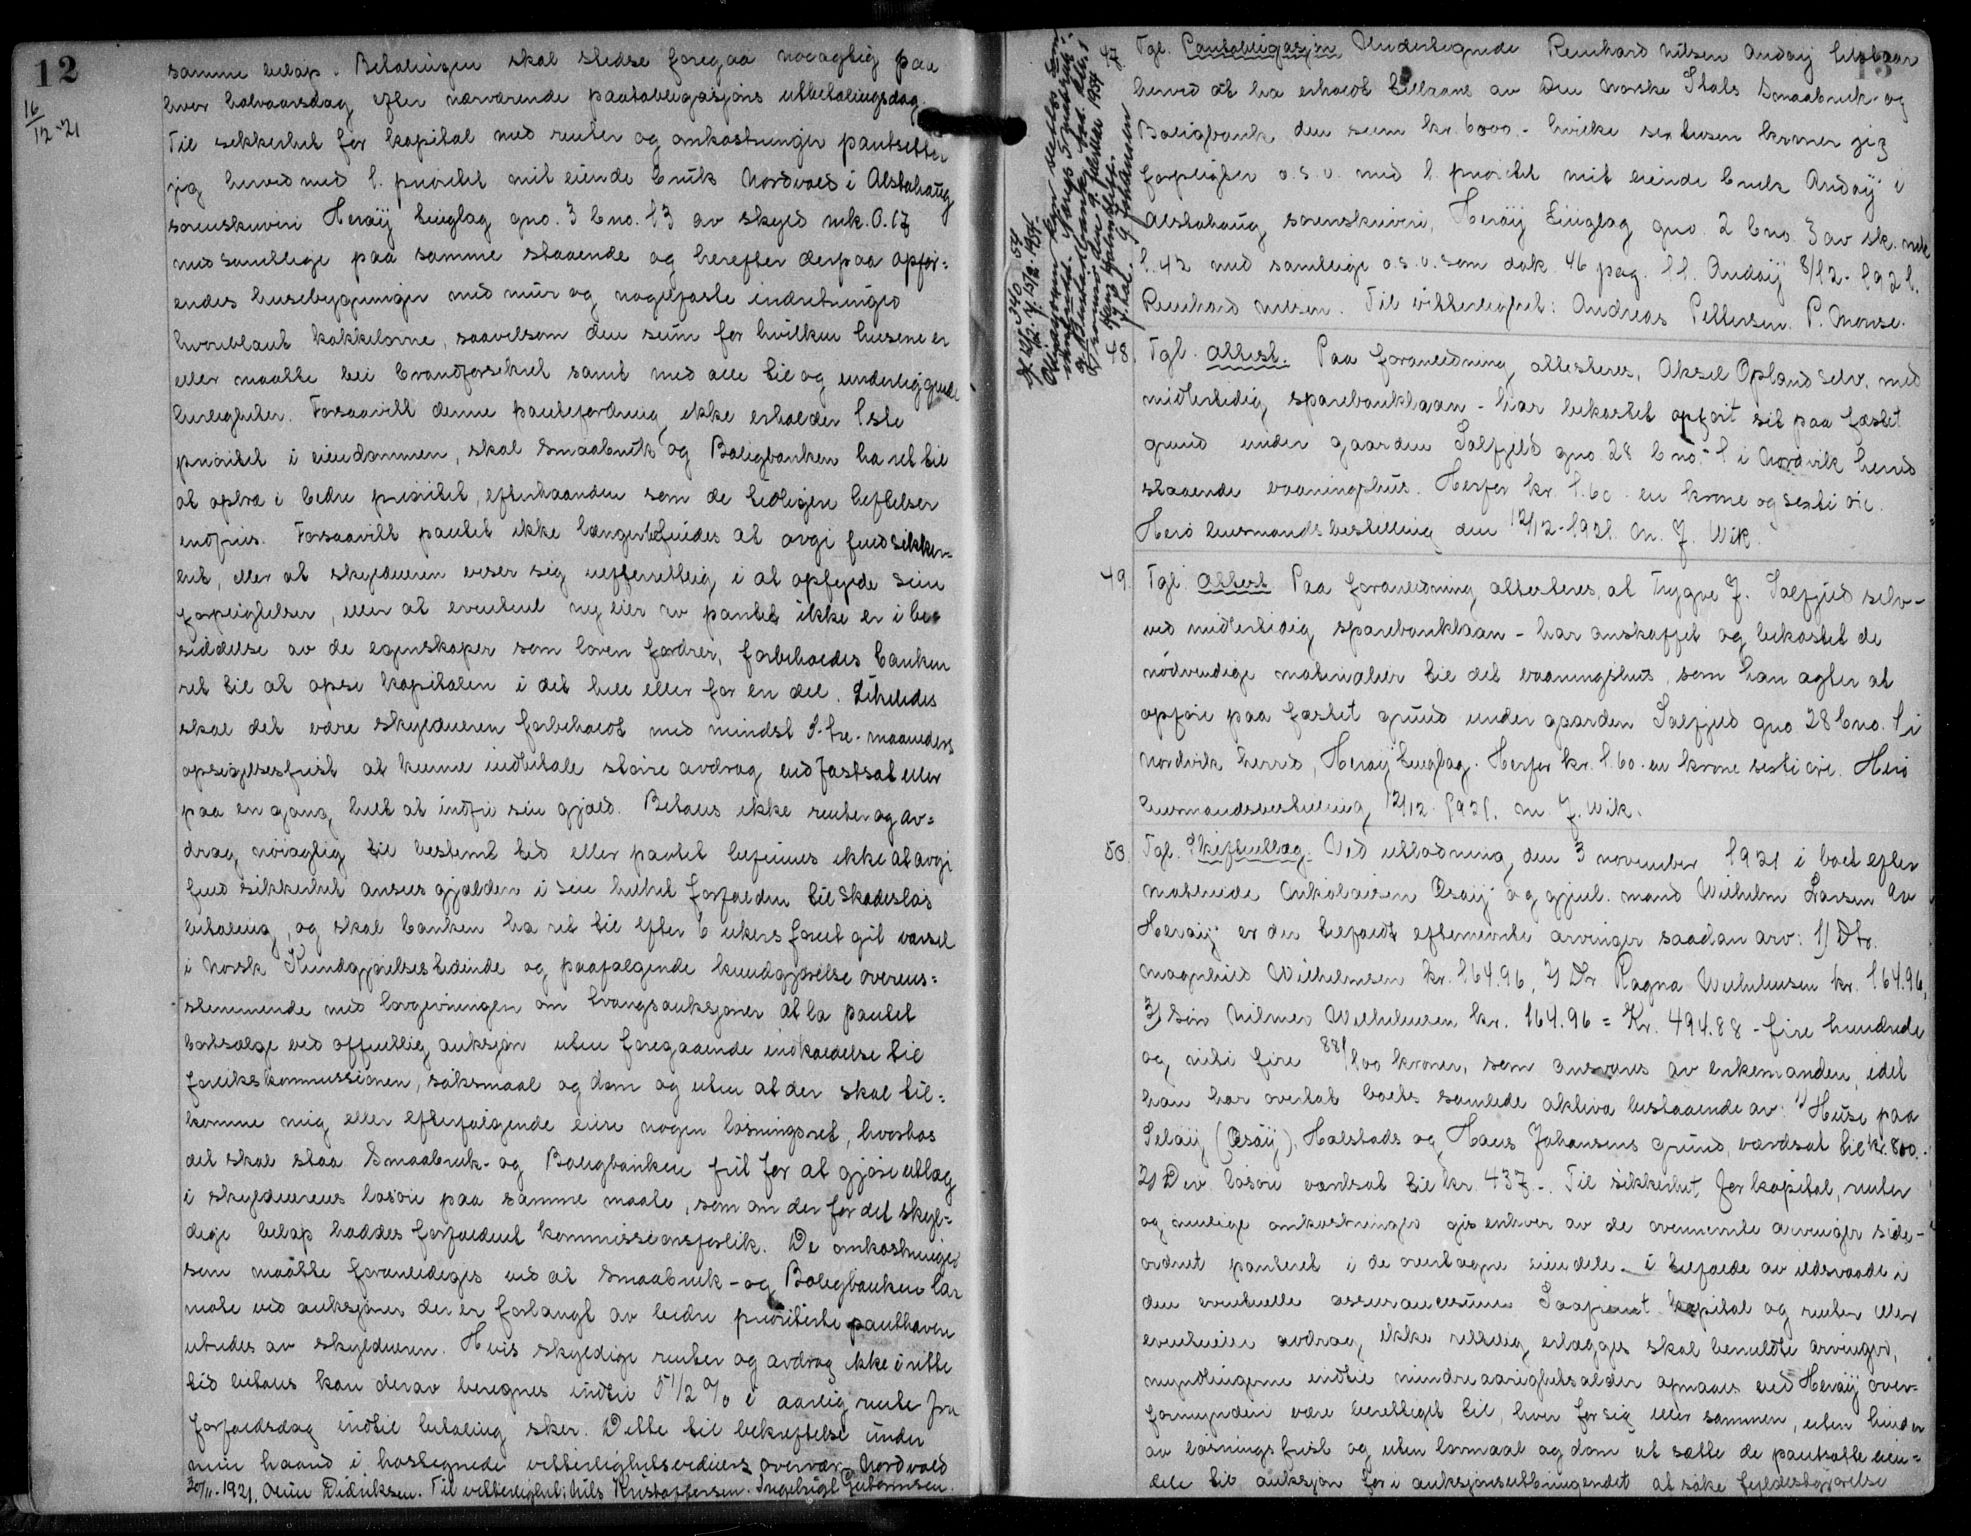 12
16/12-21
samme beløp. Betalingen skal stedse foregaa nøiagtig paa
hver halvaarsdag efter nærværende pantobligasjons utbetalingsdag.
Til sikkerhet for kapital med renter og omkostninger pantsetter
jeg herved med 1. prioritet mit eiende bruk Nordvold i Alstahaug
sorenskriveri Herøy tinglag gno. 3 bno. 13 av skyld mk. 0.17
med samtlige paa samme staaende og herefter derpaa opfør=
endes husebygninger med mur og nagelfaste indretninger
hvoriblant kakkelovne, saavelsom den sum for hvilken husene er
eller maatte bli brandforsikret samt med alle til og underliggende
herligheter. Forsaavitt denne pantefordring ikke erholder 1ste
prioritet i eiendommen, skal Smaabruk og Boligbanken ha ret til
at optræ i bedre prioritet, efterhaanden som de tidligere heftelser
indfries. Forsaavitt pantet ikke længer befindes at avgi fuld sikker=
het, eller at skyldneren viser sig uefterrettelig i at opfylde sine
forpligtelser, eller at eventuel ny eier av pantet ikke er i be=
siddelse av de egenskaper som loven fordrer, forbeholdes banken
ret til at opsi kapitalen i det hele eller for en del. Likeledes
skal det være skyldneren forbeholdt med mindst 3-tre-maaneders
opsigelsesfrist at kunne indbetale større avdrag end fastsat eller
paa en gang helt at indfri sin gjæld. Betales ikke renter og av=
drag nøiagtig til bestemt tid eller pantet befinnes ikke at avgi
fuld sikkerhet ansees gjælden i sin helhet forfalden til skadesløs
betaling, og skal banken ha ret til efter 6 ukers forut git varsel
i Norsk Kundgjørelsestidende og paafølgende kundgjørelse overens=
stemmende med lovgivningen om tvangsauksjoner at la pantet
bortsælge ved offentlig auksjon uten foregaaende indkaldelse til
forlikskommissionen, søksmaal og dom og uten at der skal til=
komme mig eller efterfølgende eiere nogen løsningsret, hvorhos
det skal staa Smaabruk- og Boligbanken frit for at gjøre utlæg
i skyldnerens løsøre paa samme maate, som om der for det skyl=
dige beløp haddes forfaldent kommissionsforlik. De omkostninger
som maatte foranlediges ved at Smaabruk- og Boligbanken lar
møte ved auksjoner der er forlangt av bedre prioriterte panthavere
utredes av skyldneren. Hvis skyldige renter og avdrag ikke i rette
tid betales kan derav beregnes indtil 5 1/2 % i aarlig rente fra
forfaldsdag indtil betaling sker. Dette til bekreftelse under
min haand i hostegnede vitterlighetsvidners overvær. Nordvold
30/11-1921. Oline Didriksen. Til vitterlighet: Nils Kristoffersen. Ingebrigt
13
47. Tgl. Pantobligasjon Undertegnede Reinhard Nilsen Andøy tilstaar
herved at ha erholdt tillaans av Den norske Stats Smaabruk- og
Boligbank den sum kr. 6000.- hvilke sex tusen kroner jeg
forpligter o.s.v. med 1. prioritet mit eiende bruk Andøy i
Alstahaug sorenskriveri, Herøy tinglag gno. 2 bno. 3 av sk. mk
1.42 med samtlige o.s.v. som dok. 46 pag. 11. Andøy 8/12-1921.
Reinhard Nilsen. Til vitterlighet: Andreas Pettersen. P. Monse.
48. Tgl. Attest. Paa foranledning attesteres, Aksel Opland selv, med
midlertidig sparebanklaan - har bekostet opført sit paa fæstet
grund under gaarden Salfjeld gno. 28 bno. 1 i Nordvik herred
staaende vaaningshus. Herfor kr. 1.60. en krone og sexti øre.
Herø lensmandsbestilling den 12/12-1921. M. J. Wik.
49. Tgl. Attest Paa foranledning attesteres, at Trygve J. Salfjeld selv-
ved midlertidig sparebanklaan - har anskaffet og bekostet de
nødvendige materialier til det vaaningshus, som han agter at
opføre paa fæstet grund under gaarden Salfjeld gno 28 bno. 1 i
Nordvik herred, Herøy tinglag. Herfor kr. 1.60. en krone sexti øre. Herø
lensmandsbestilling, 12/12.1921. M. J. Wik.
50. Tgl. Skifteutlæg. Ved utlodning den 3 november 1921 i boet efter
Øksøy og gjenl. mand Wilhelm Larsen av
Herøy er der tilfaldt efternevnte arvinger saadan arv: 1) Dtr.
Magnhild Wilhelmsen kr. 164.96, 2) Dtr. Ragna Wilhelmsen kr. 164.96,
3) Søn Hilmer Wilhelmsen kr. 164.96 = Kr. 494.88 - fire hundrede
og nitti fire 88/100 kroner, som ansvares av enkemanden, idet
han har overtat boets samlede aktiva bestaaende av: 1) Huse paa
Seløy (), Halstads og Hans Johansens grund, værdsat til kr. 800.-
2) Div. løsøre værdsat til kr. 437.-. Til sikkerhet for kapital, renter
og mulige omkostninger gis enhver av de ovennevnte arvinger side-
ordnet panteret i de overtagne eiendele - i tilfælde av ildsvaade i
den eventuelle assurancesum. Saafremt kapital og renter eller
eventuelle avdrag ikke rettelig erlægges skal bemeldte arvinger,
myndlingerne indtil mindreaarighetsalder opnaaes ved Herøy over-
formynderi være berettiget til, hver for sig eller sammen, uten hinder
av løsningsfrist og uten lovmaal og dom at sætte de pantsatte eien=
dele til auksjon for i auksjonsutbringendet at søke fyldestgjørelse